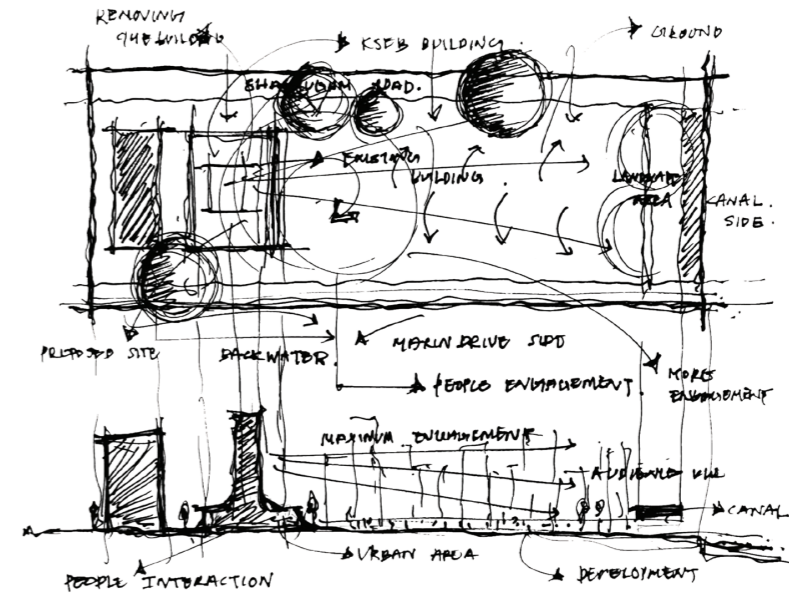 REMOVING
THE BUILDING
KSEB BUILDING.
GROUND
SHANMUGAM ROAD.
EXISTING
BUILDING
LANDSCAPE
AREA
CANAL.
SIDE.
PROPOSED SITE
BACKWATER
MARIN DRIVE SIDE
PEOPLE ENGAGEMENT
MORE
ENGAGEMENT
MAXIMUM ENGAGEMENT
AUDIENCE
CANAL
URBAN AREA
PEOPLE INTERACTION
DEVELOPMENT